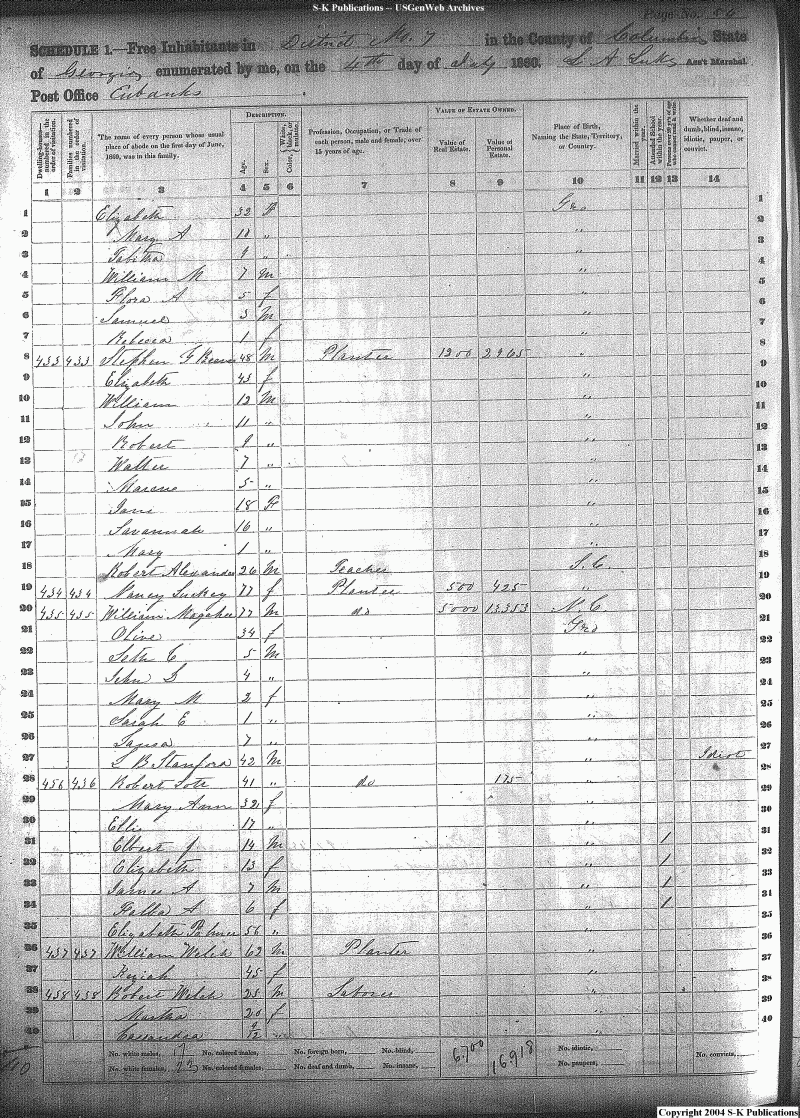 S-K Publications -- USGenWeb Archives
Page No. 54
SCHEDULE 1.—Free Inhabitants in District No. 7 in the County of Columbia State
of Georgia enumerated by me, on the 4th day of July 1860. L A Luke Ass't Marshal.
Post Office Eubanks
Dwelling-houses—numbered in the order of visitation.
Families numbered in the order of visitation.
The name of every person whose usual place of abode on the first day of June, 1860, was in this family.
DESCRIPTION.
Age.
Sex.
Color, White, black, or mulatto.
Profession, Occupation, or Trade of each person, male and female, over 15 years of age.
VALUE OF ESTATE OWNED.
Value of Real Estate.
Value of Personal Estate.
Place of Birth, Naming the State, Territory, or Country.
Married within the year.
Attended School within the year.
Whether deaf and dumb, blind, insane, idiotic, pauper, or convict.
1 2 3 4 5 6 7 8 9 10 11 12 13 14
1 Elizabeth 32 F Geo 1
2 Mary A 11 " " 2
3 Tabitha 9 " " 3
4 William M 7 M " 4
5 Flora A 5 f " 5
6 Samuel 3 M " 6
7 Rebecca 1 f " 7
8 433 433 Stephen G 48 M Planter 1200 2965 " 8
9 Elizabeth 43 f " 9
10 William 12 M " 10
11 John 11 " " 11
12 Robert 9 " " 12
13 Walter 7 " " 13
14 5 " " 14
15 Jane 18 F " 15
16 Savannah 16 " " 16
17 Mary 1 " " 17
18 Robert Alexander 26 M Teacher S.C. 18
19 434 434 Nancy Luckey 77 f Planter 500 425 " 19
20 435 435 William Magahee 77 M do 5000 13353 N.C. 20
21 Olive 34 f Geo 21
22 Seth C 5 M " 22
23 John D 4 " " 23
24 Mary M 2 f " 24
25 Sarah E 1 " " 25
26 7 " " 26
27 L B Stanford 42 M " Idiot 27
28 436 436 Robert 41 " do 175 " 28
29 Mary Ann 32 f " 29
30 17 " " 30
31 Elbert J. 14 M " 1 31
32 Elizabeth 13 f " 1 32
33 James A 7 M " 1 33
34 A 6 f " 1 34
35 Elizabeth Palmer 56 " " 35
36 437 437 William Welch 62 M Planter " 36
37 Keziah 45 f " 37
38 438 438 Robert Welch 25 M Laborer " 38
39 Martha 20 f " 39
40 Cassandra 9/12 " " 40
No. white males, 17 No. colored males, No. foreign born, No. blind, 6700 16918 No. idiotic,
No. white females, 23 No. colored females, No. deaf and dumb, No. insane, No. paupers, No. convicts,
Copyright 2004 S-K Publications